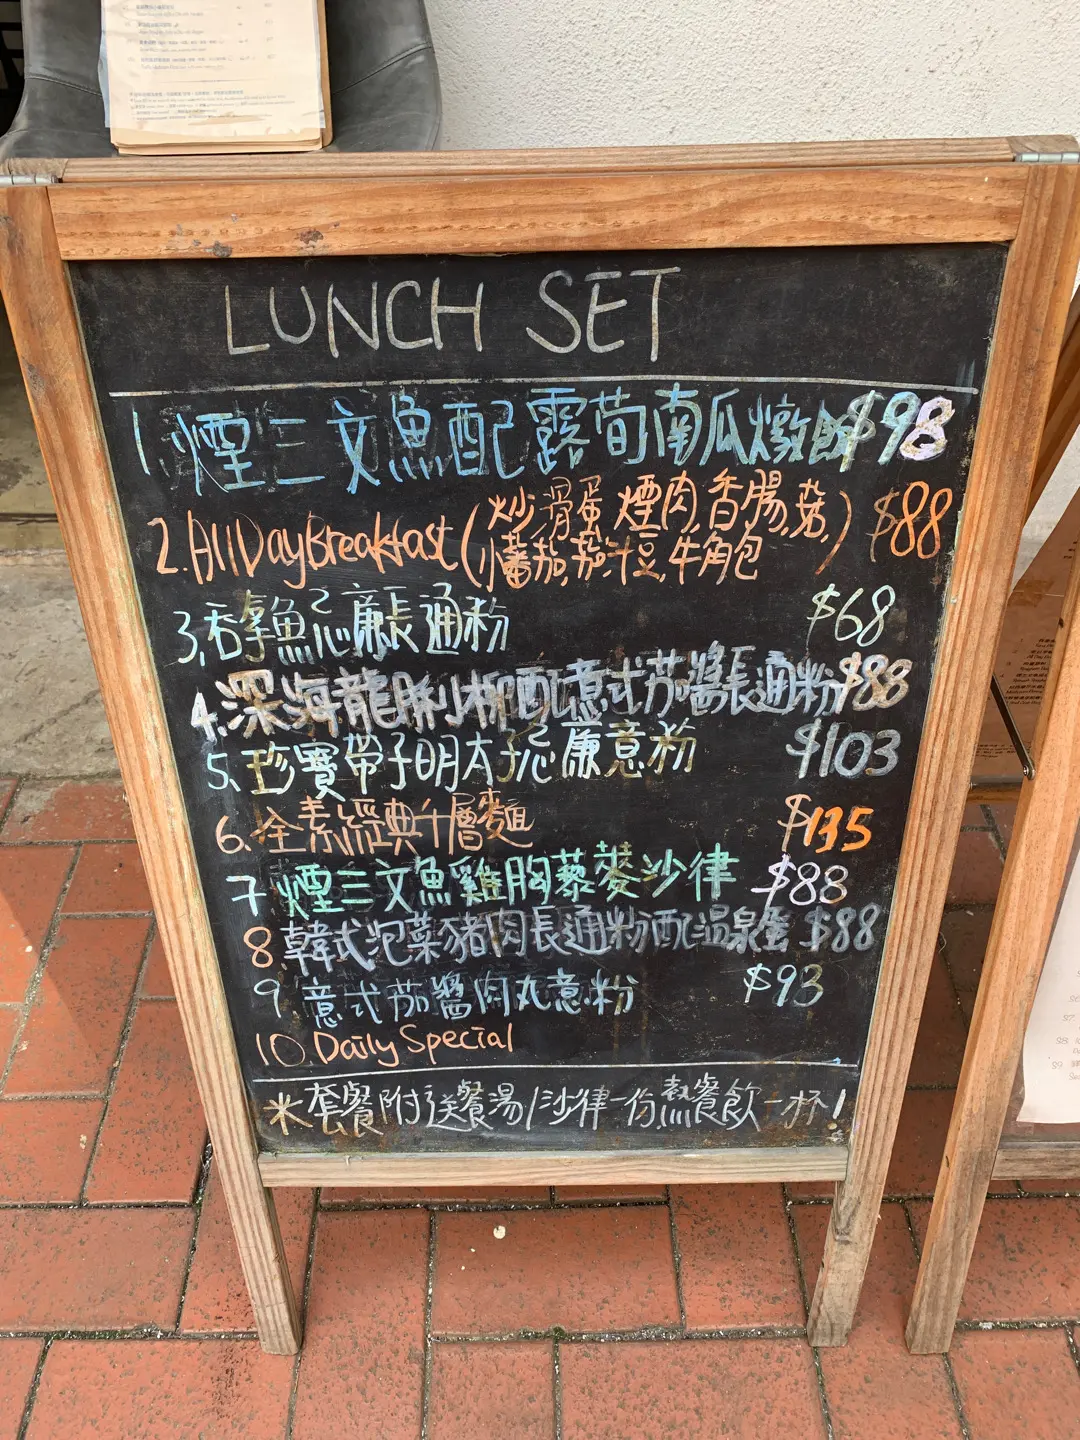 LUNCH SET
1. 煙三文魚配露荀南瓜燉飯 $98
2. All Day Breakfast (炒滑蛋, 煙肉, 香腸, 菇, $88
小蕃茄, 茄汁豆, 牛角包)
3. 吞拿魚忌廉長通粉 $68
4. 深海龍脷柳配意式茄醬長通粉 $88
5. 珍寶帶子明太子忌廉意粉 $103
6. 全素經典千層麵 $135
7 煙三文魚雞胸藜麥沙律 $88
8. 韓式泡菜豬肉長通粉配温泉蛋 $88
9. 意式茄醬肉丸意粉 $93
10. Daily Special
*套餐附送餐湯/沙律一份, 熱餐飲一杯!